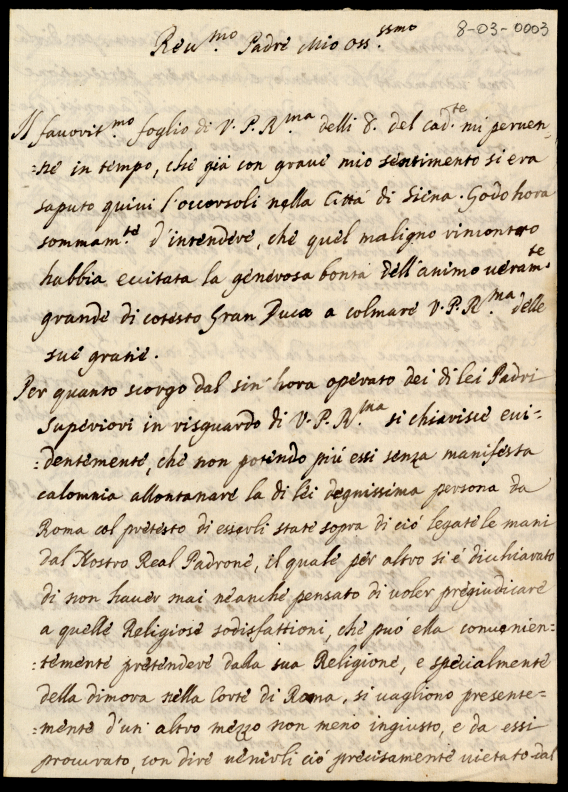 8-03-0003
Reu.mo Padre Mio Oss.ssmo
Il favorit.mo foglio di V. P. R.ma delli 8. del cad.te mi perven-
:ne in tempo, che già con grave mio sentimento si era
saputo quivi l'occorsoli nella Città di Siena. Godo hora
sommam.te d'intendere, che quel maligno rincontro
habbia eccitata la generosa bontà dell'animo veram.te
grande di cotesto Gran Duca a colmare V. P. R.ma delle
sue gratie.
Per quanto scorgo dal sin' hora operato dei di lei Padri
Superiori in risguardo di V. P. R.ma si chiarisce evi-
:dentemente, che non potendo più essi senza manifesta
calomnia allontanare la di lei degnissima persona da
Roma col pretesto di esserli state sopra di ciò legate le mani
dal Nostro Real Padrone, il quale per altro si è dichiarato
di non haver mai neanche pensato di voler pregiudicare
a quelle Religiose sodisfattioni, che può ella convenien-
:temente pretendere dalla sua Religione, e specialmente
della dimora nella Corte di Roma, si vagliono presente-
:mente d'un' altro mezzo non meno ingiusto, e da essi
procurato, con dire venirli ciò precisamente vietato dal